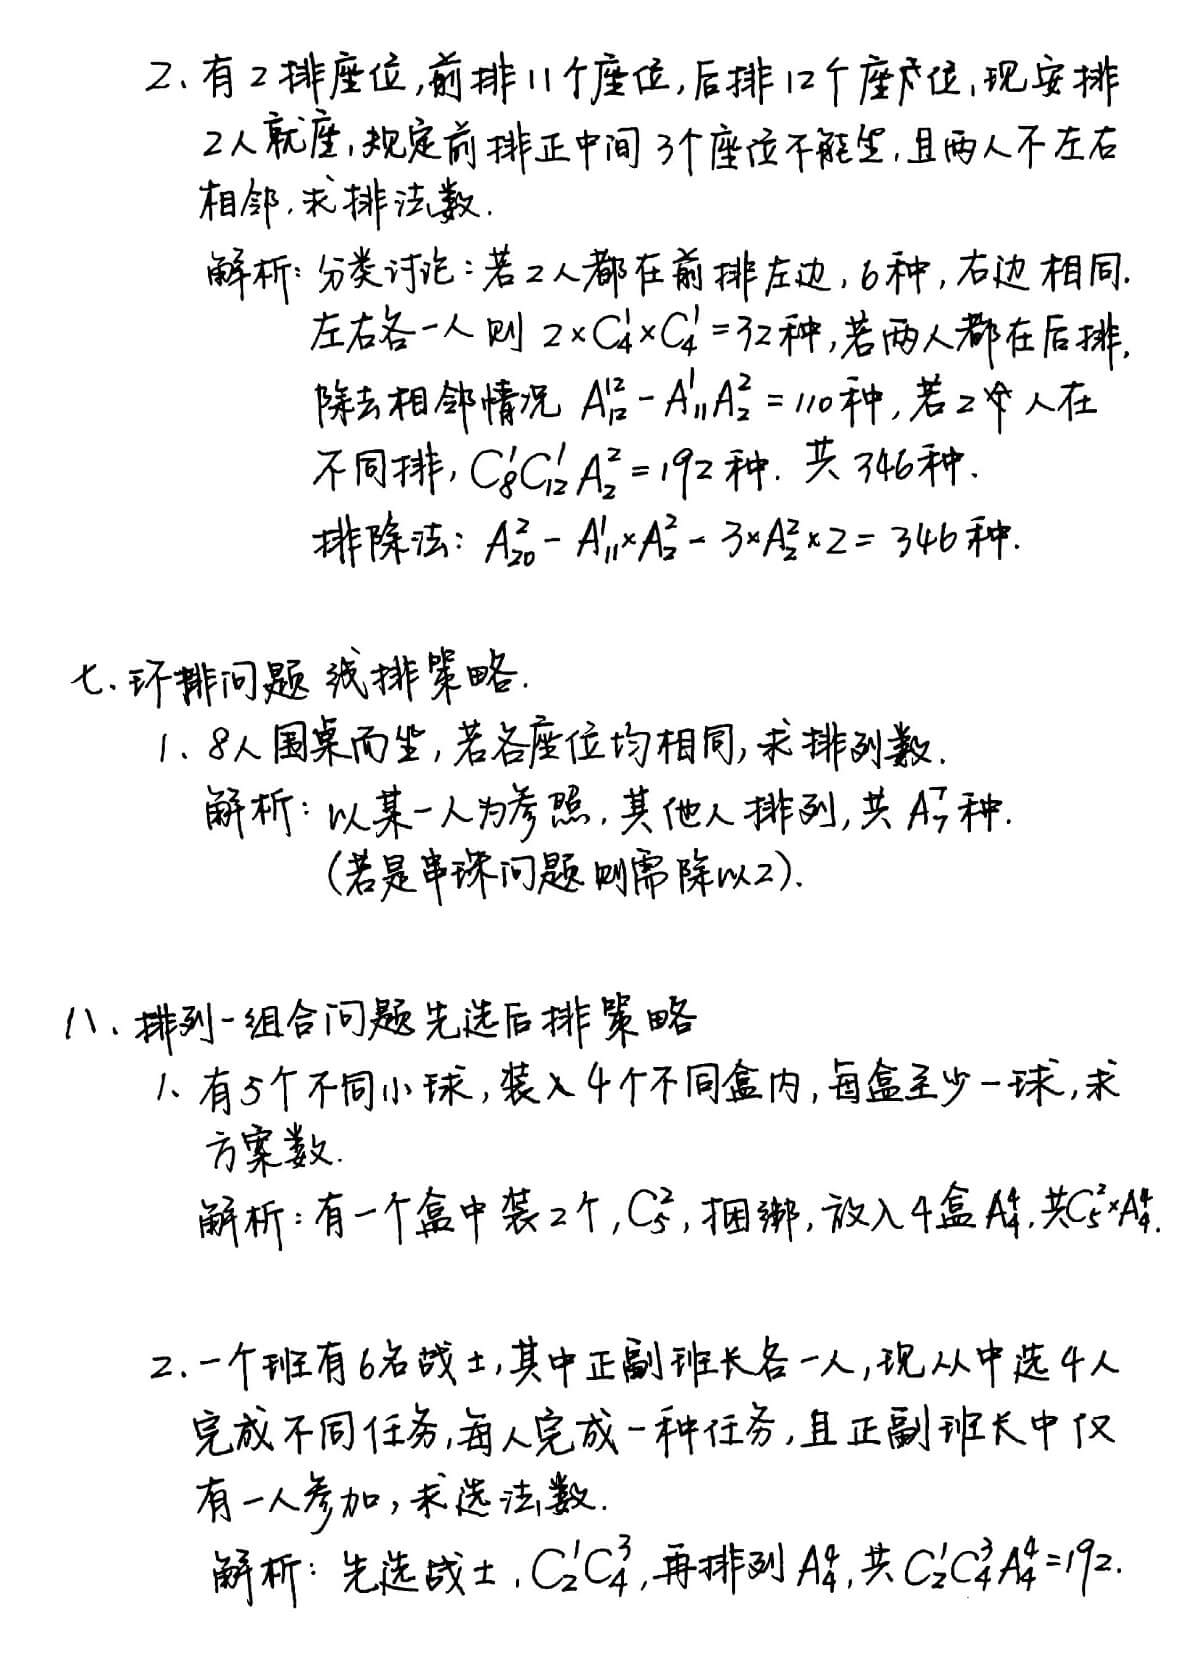 2、有2排座位,前排11个座位,后排12个座位,现安排
2人就座,规定前排正中间3个座位不能坐,且两人不左右
相邻,求排法数.
解析:分类讨论:若2人都在前排左边,6种,右边相同.
左右各一人则 2×C₄¹×C₄¹=32种,若两人都在后排,
除去相邻情况 A₁₂¹²-A₁₁¹A₂²=110种,若2个人在
不同排,C₈¹C₁₂¹A₂²=192种. 共346种.
排除法:A₂₀²-A₁₁¹×A₂²-3×A₂²×2=346种.
七、环排问题 线排策略.
1、8人围桌而坐,若各座位均相同,求排列数.
解析:以某一人为参照,其他人排列,共A₇⁷种.
(若是串珠问题则需除以2).
八、排列-组合问题先选后排策略
1、有5个不同小球,装入4个不同盒内,每盒至少一球,求
方案数.
解析:有一个盒中装2个,C₅²,捆绑,放入4盒A₄⁴,共C₅²×A₄⁴.
2、一个班有6名战士,其中正副班长各一人,现从中选4人
完成不同任务,每人完成一种任务,且正副班长中仅
有一人参加,求选法数.
解析:先选战士,C₂¹C₄³,再排列A₄⁴,共C₂¹C₄³A₄⁴=192.